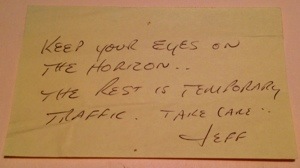 KEEP YOUR EYES ON
THE HORIZON..
THE REST IS TEMPORARY
TRAFFIC. TAKE CARE..
JEFF